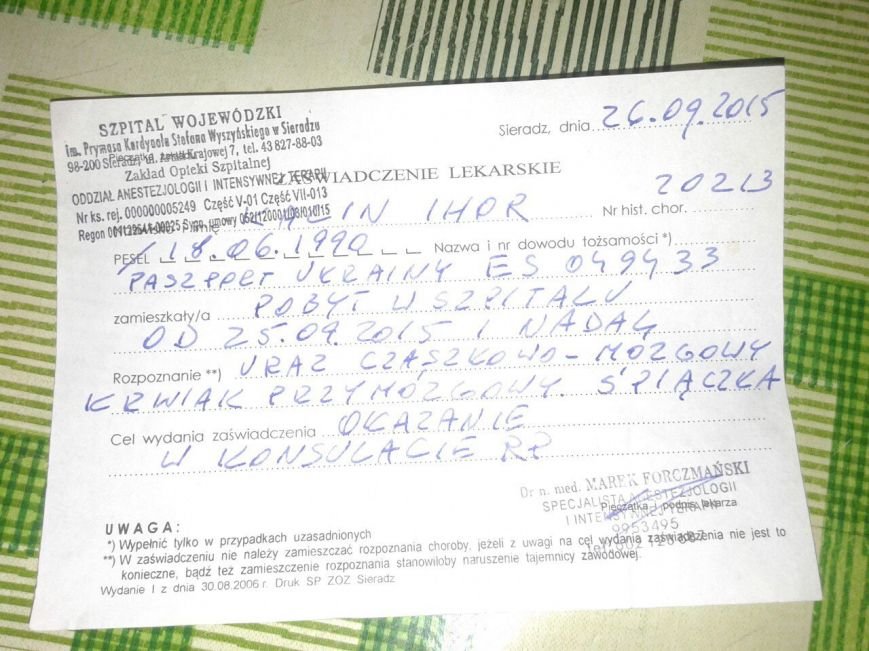 SZPITAL WOJEWÓDZKI
im. Prymasa Kardynała Stefana Wyszyńskiego w Sieradzu
98-200 Sieradz, ul. Armii Krajowej 7, tel. 43 827-88-03
Zakład Opieki Szpitalnej
ODDZIAŁ ANESTEZJOLOGII I INTENSYWNEJ TERAPII
Nr ks. rej. 000000005249 Część V-01 Część VII-013
Sieradz, dnia 26.09.2015
ZAŚWIADCZENIE LEKARSKIE
IHOR Nr hist. chor. 20213
PESEL 18.06.1990 Nazwa i nr dowodu tożsamości *)
PASZPORT UKRAINY ES 049433
zamieszkały/a POBYT W SZPITALU
OD 25.09.2015 I NADAL
Rozpoznanie **) URAZ CZASZKOWO-MÓZGOWY
KRWIAK PRZYMÓZGOWY. ŚPIĄCZKA
Cel wydania zaświadczenia OKAZANIE
W KONSULACIE RP
Dr n. med. MAREK FORCZMAŃSKI
SPECJALISTA ANESTEZJOLOGII
I INTENSYWNEJ TERAPII
Pieczątka i podpis lekarza
9953495
UWAGA:
*) Wypełnić tylko w przypadkach uzasadnionych
**) W zaświadczeniu nie należy zamieszczać rozpoznania choroby, jeżeli z uwagi na cel wydania zaświadczenia nie jest to
konieczne, bądź też zamieszczenie rozpoznania stanowiłoby naruszenie tajemnicy zawodowej.
Wydanie I z dnia 30.08.2006 r. Druk SP ZOZ Sieradz